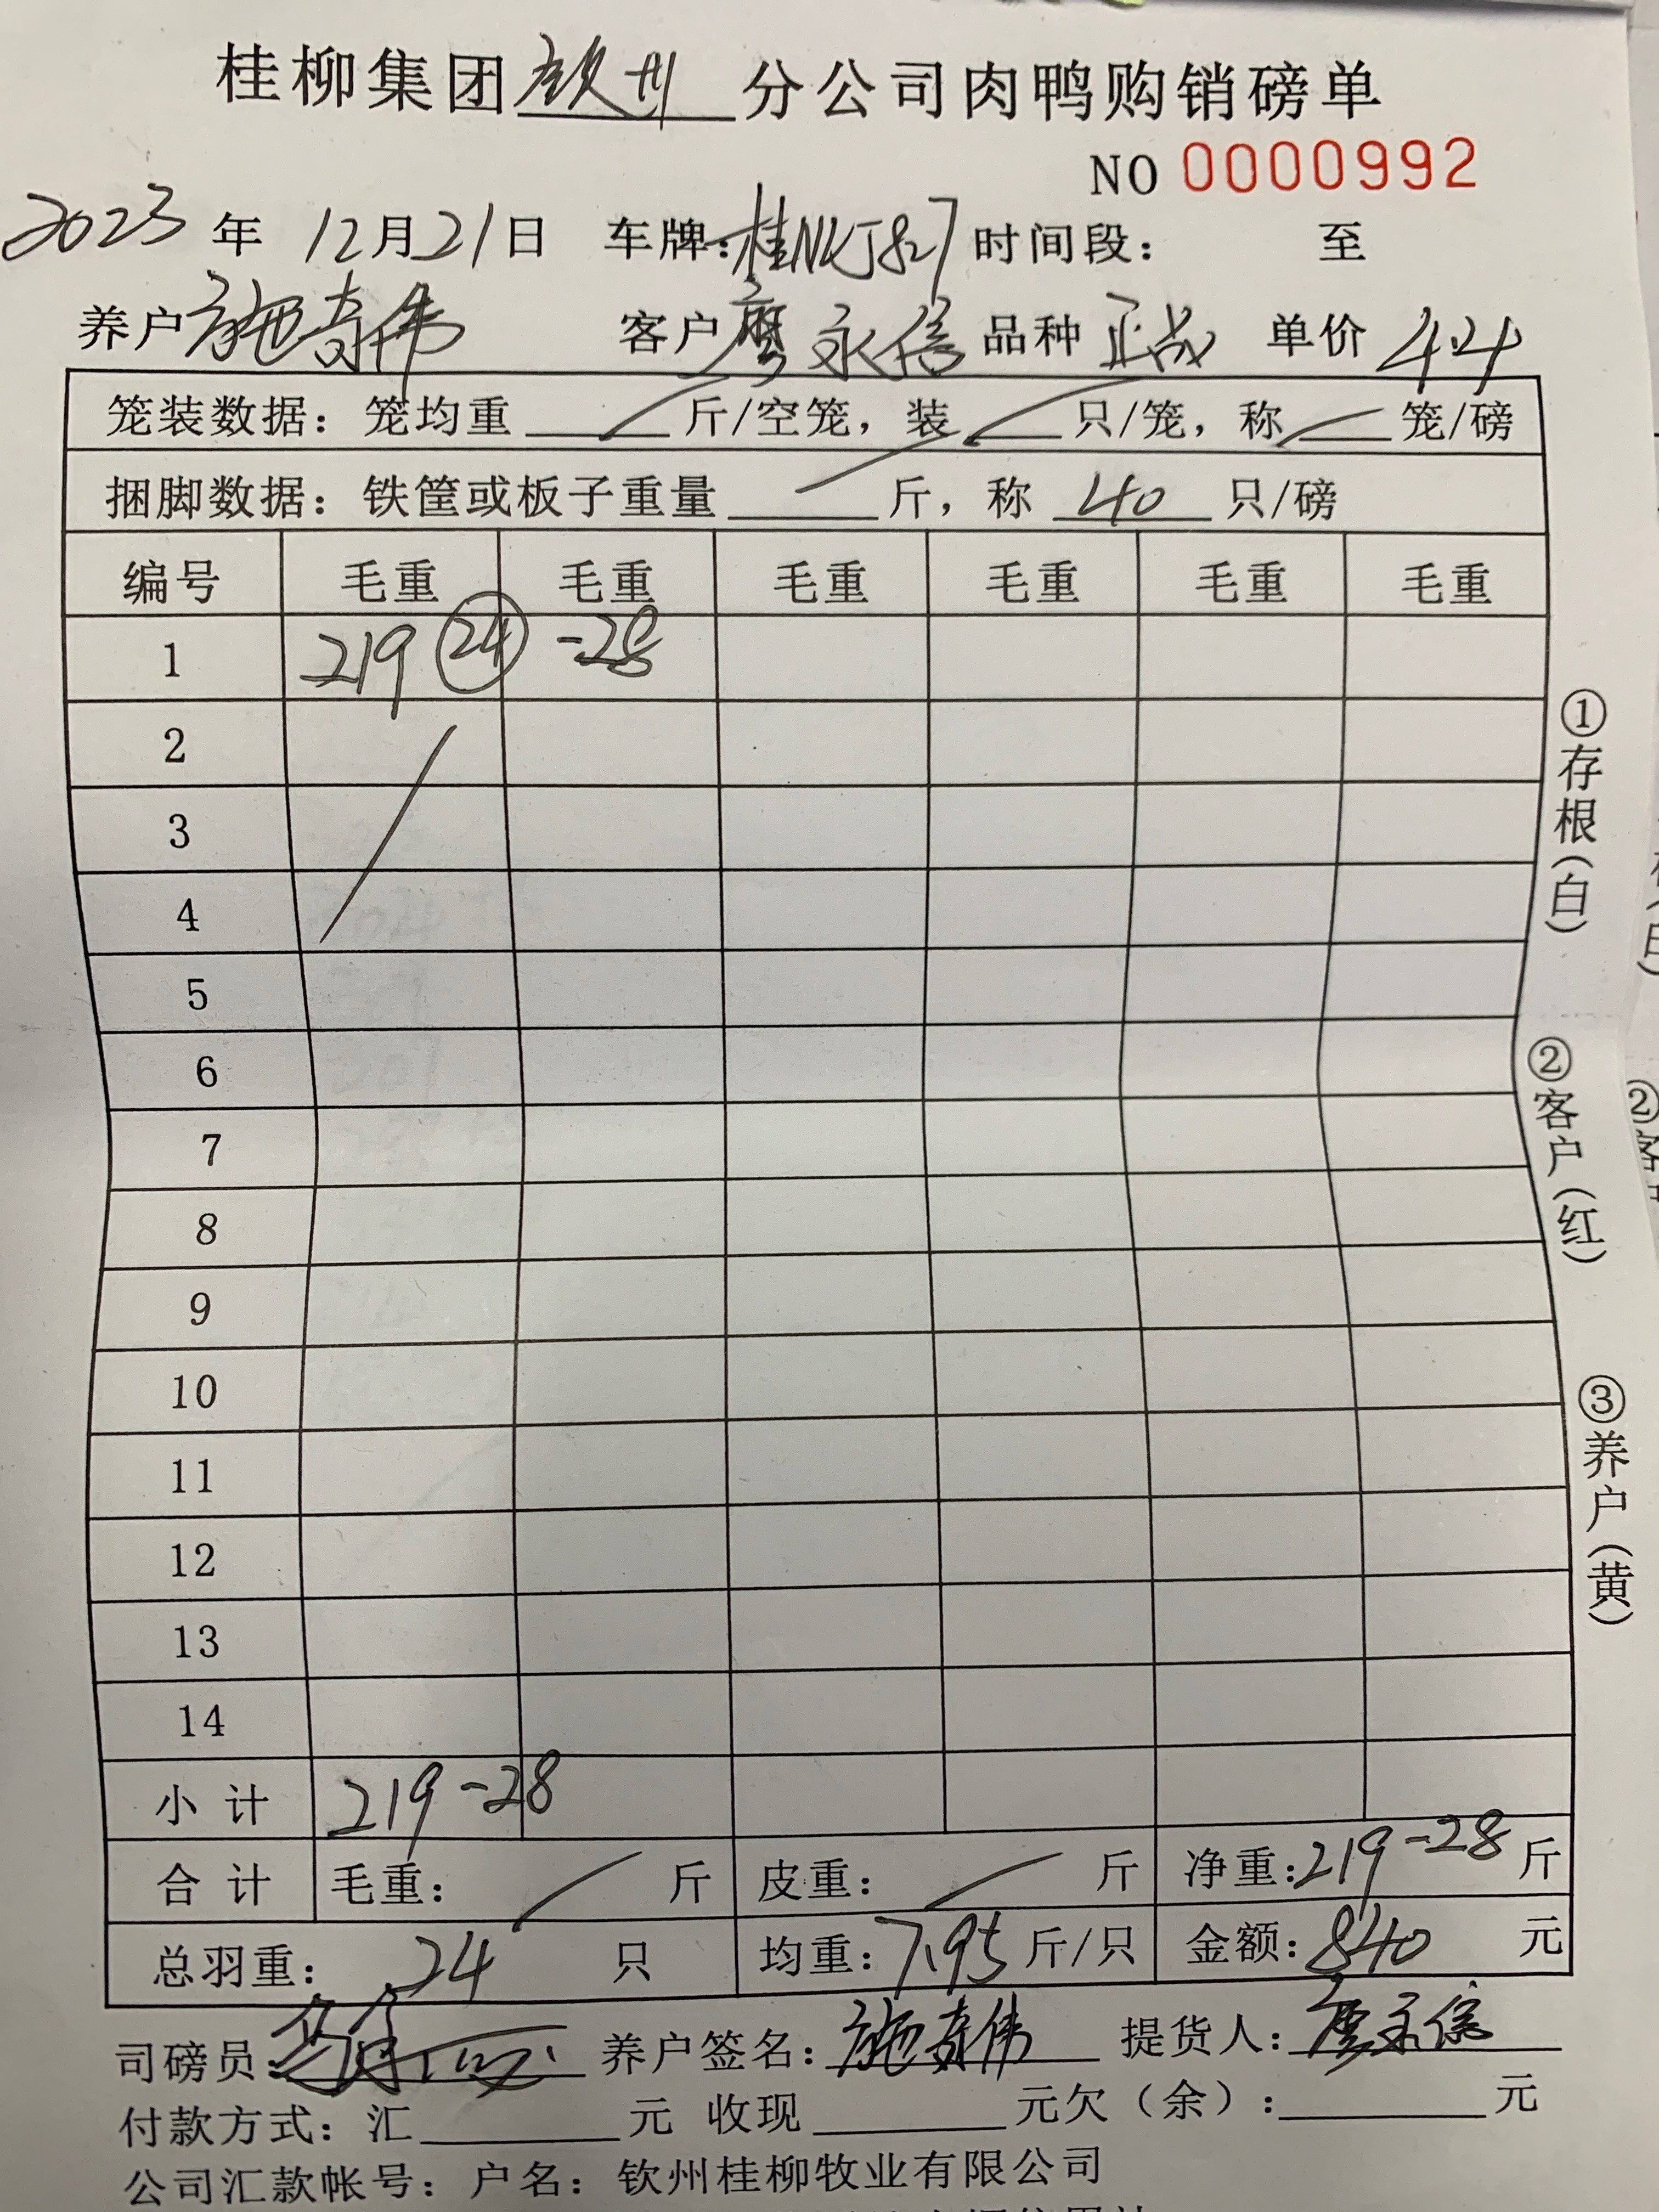 桂柳集团钦州分公司肉鸭购销磅单
NO 0000992
2023年12月21日 车牌:桂NKJ827 时间段: 至
养户施奇伟 客户廖永信 品种正成 单价4.4
笼装数据:笼均重 / 斤/空笼,装 / 只/笼,称 / 笼/磅
捆脚数据:铁筐或板子重量 / 斤,称 40 只/磅
编号 毛重 毛重 毛重 毛重 毛重 毛重
1 219 24 -28
2
3
4
5
6
7
8
9
10
11
12
13
14
小计 219-28
合计 毛重: / 斤 皮重: / 斤 净重:219-28斤
总羽重: 24 只 均重:7.95斤/只 金额:840元
司磅员: 养户签名:施奇伟 提货人:廖永信
付款方式:汇 元 收现 元欠(余): 元
公司汇款帐号:户名:钦州桂柳牧业有限公司
①存根(白)
②客户(红)
③养户(黄)